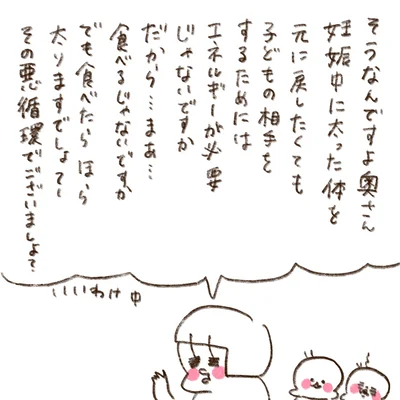 そうなんですよ奥さん
妊娠中に太った体を
元に戻したくても
子どもの相手を
するためには
エネルギーが必要
じゃないですか
だから…まあ…
食べるじゃないですか
でも食べたら ほら
太りますでしょて
その悪循環でございましょて
いいわけ中